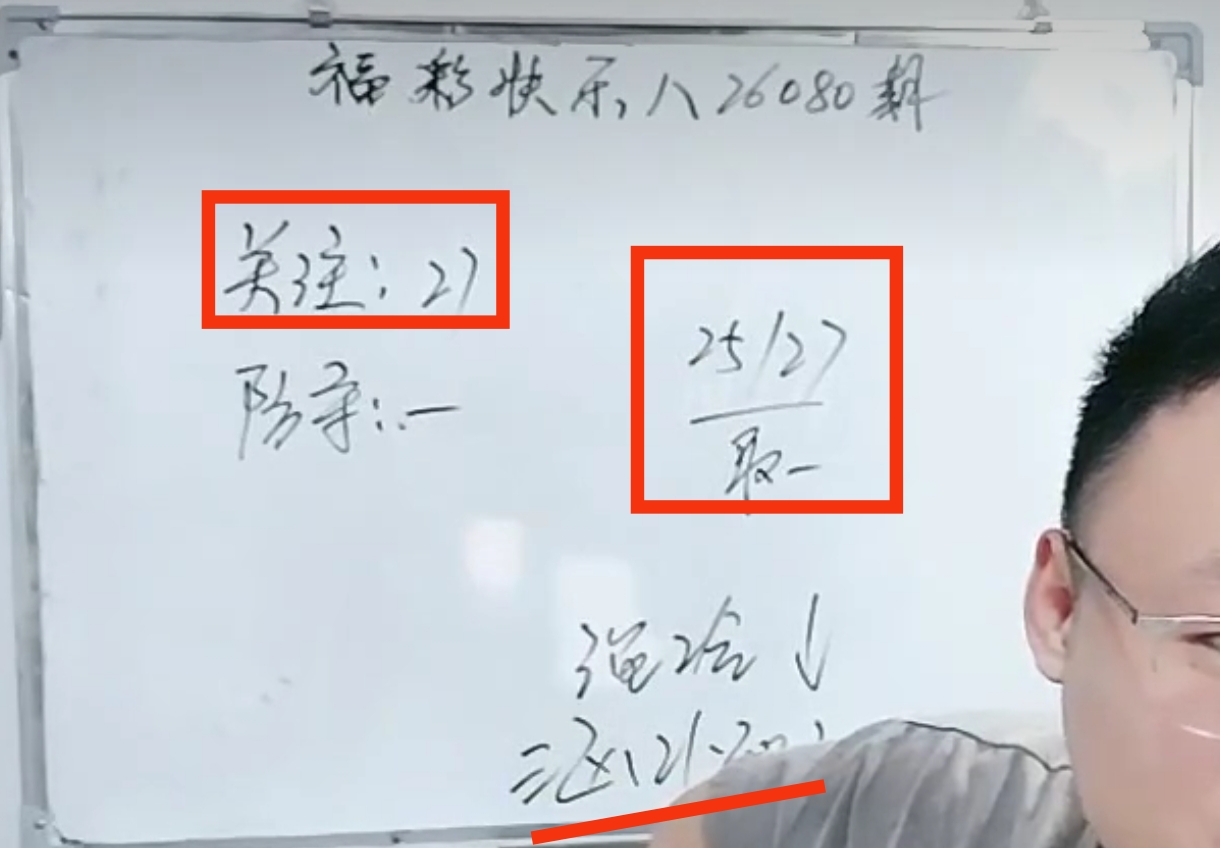 福彩快乐八26080期
关注：27
25/27
取一
阶段：一
强冷↓
三区(21-30)